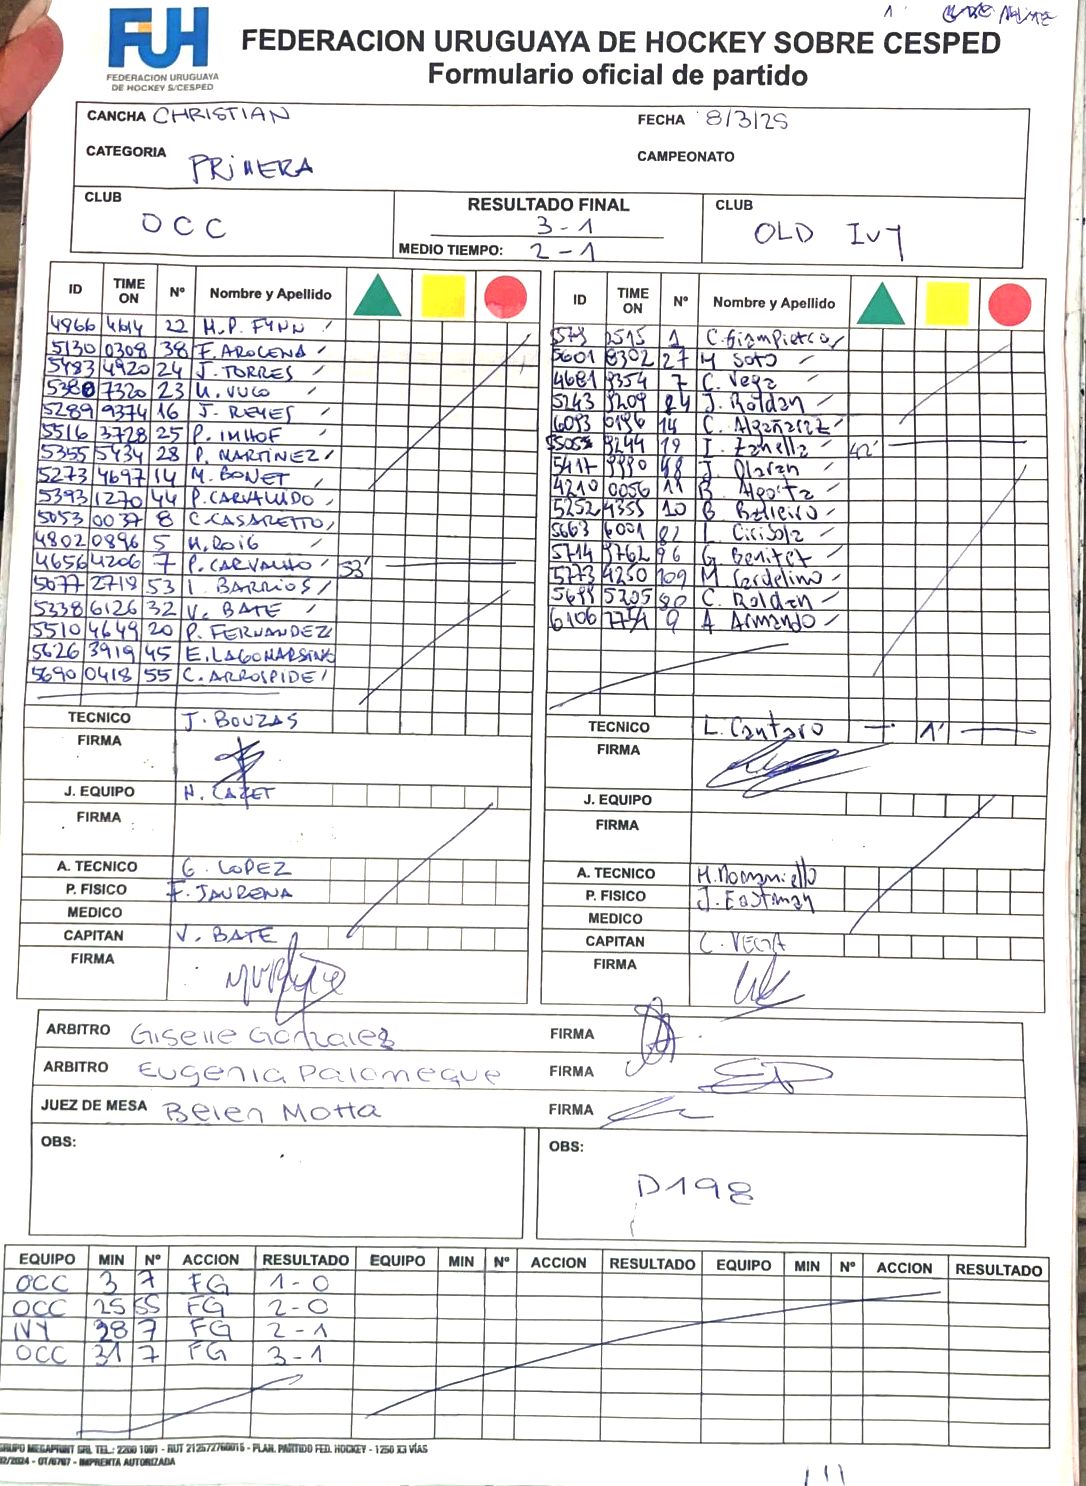 FUH
FEDERACION URUGUAYA
DE HOCKEY S/CESPED
FEDERACION URUGUAYA DE HOCKEY SOBRE CESPED
Formulario oficial de partido
CANCHA CHRISTIAN FECHA 8/3/25
CATEGORIA PRIMERA CAMPEONATO
CLUB OCC RESULTADO FINAL 3-1 CLUB OLD IVY
MEDIO TIEMPO: 2-1
ID TIME ON Nº Nombre y Apellido
4866 4614 22 M.P. FYNN
5130 0308 38 F. AROCENA
5483 4920 24 J. TORRES
5380 7320 23 M. VUCO
5289 9374 16 J. REYES
5516 3728 25 P. IMHOF
5355 5434 28 P. MARTINEZ
5273 4697 14 M. BONET
5393 1270 44 P. CARVALHO
5053 0037 8 C. CASARETTO
4802 0896 5 M. ROIG
4656 4206 7 P. CARVALHO 53'
5077 2718 53 I. BARRIOS
5338 6126 32 V. BATE
5510 4649 20 P. FERNANDEZ
5626 3919 45 E. LAGOMARSINO
5690 0418 55 C. ARROSPIDE
TECNICO J. BOUZAS
FIRMA
J. EQUIPO N. CAZET
FIRMA
A. TECNICO G. LOPEZ
P. FISICO F. JAURENA
MEDICO
CAPITAN V. BATE
FIRMA
ID TIME ON Nº Nombre y Apellido
2515 1 C. Giampietro
5601 8302 27 M Soto
4681 9354 7 C. Vega
5243 9209 24 J. Roldan
6093 0196 14 C. Algañaraz
5055 9244 19 I. Zanella 42'
5417 9990 J. Olaran
4210 0056 11 B. Algorta
5252 4355 10 B Balleiro
5663 6001 82 L. Cirisola
5714 9762 96 G Benitez
5773 4250 109 M Cardelino
5699 5205 90 C. Roldan
6106 7751 9 A Armando
TECNICO L. Cantaro 1'
FIRMA
J. EQUIPO
FIRMA
A. TECNICO M. Romaniello
P. FISICO J. Eastman
MEDICO
CAPITAN C. VEGA
FIRMA
ARBITRO Giselle Gonzalez FIRMA
ARBITRO Eugenia Palomeque FIRMA
JUEZ DE MESA Belen Motta FIRMA
OBS:
OBS:
D198
EQUIPO MIN Nº ACCION RESULTADO EQUIPO MIN Nº ACCION RESULTADO EQUIPO MIN Nº ACCION RESULTADO
OCC 3 7 FG 1-0
OCC 25 55 FG 2-0
IVY 28 7 FG 2-1
OCC 31 7 FG 3-1
GRUPO MEGAPRINT SRL TEL.: 2200 1001 - RUT 212572760015 - PLAN. PARTIDO FED. HOCKEY - 1250 X3 VÍAS
02/2024 - OT/6767 - IMPRENTA AUTORIZADA